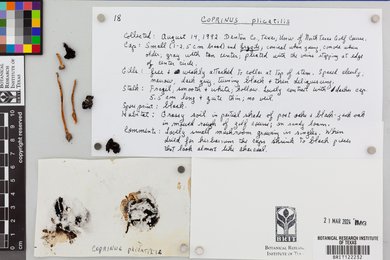 18
COPRINUS plicatilis
Collected: August 14, 1992 Denton Co, Texas, Univ of North Texas Golf Course.
Cap: Small (1-2.5 cm broad) and fragile; conical when young, convex when
older gray with tan center, pleated with the veins stopping at edge
of center circle.
Gills: free & weakly attached to collar at top of stem. Spaced closely,
narrow, dark gray turning black & then deliquescing.
Stalk: Fragil, smooth & white, hollow, contrast with darker cap
5.5 cm long & quite thin; no veil.
Spore print: black.
Habitat: Grassy soil in partial shade of post oaks & black-jack oak
in mowed rough of golf course; on sandy loam.
Comments: Lovely small mushroom growing in singles. When
dried for herbarium the caps shrink to black pieces
that look almost like charcoal.
COPRINUS plicatilis
BRIT
BOTANICAL RESEARCH
INSTITUTE OF
21 MAR 2024
BOTANICAL RESEARCH INSTITUTE
OF TEXAS